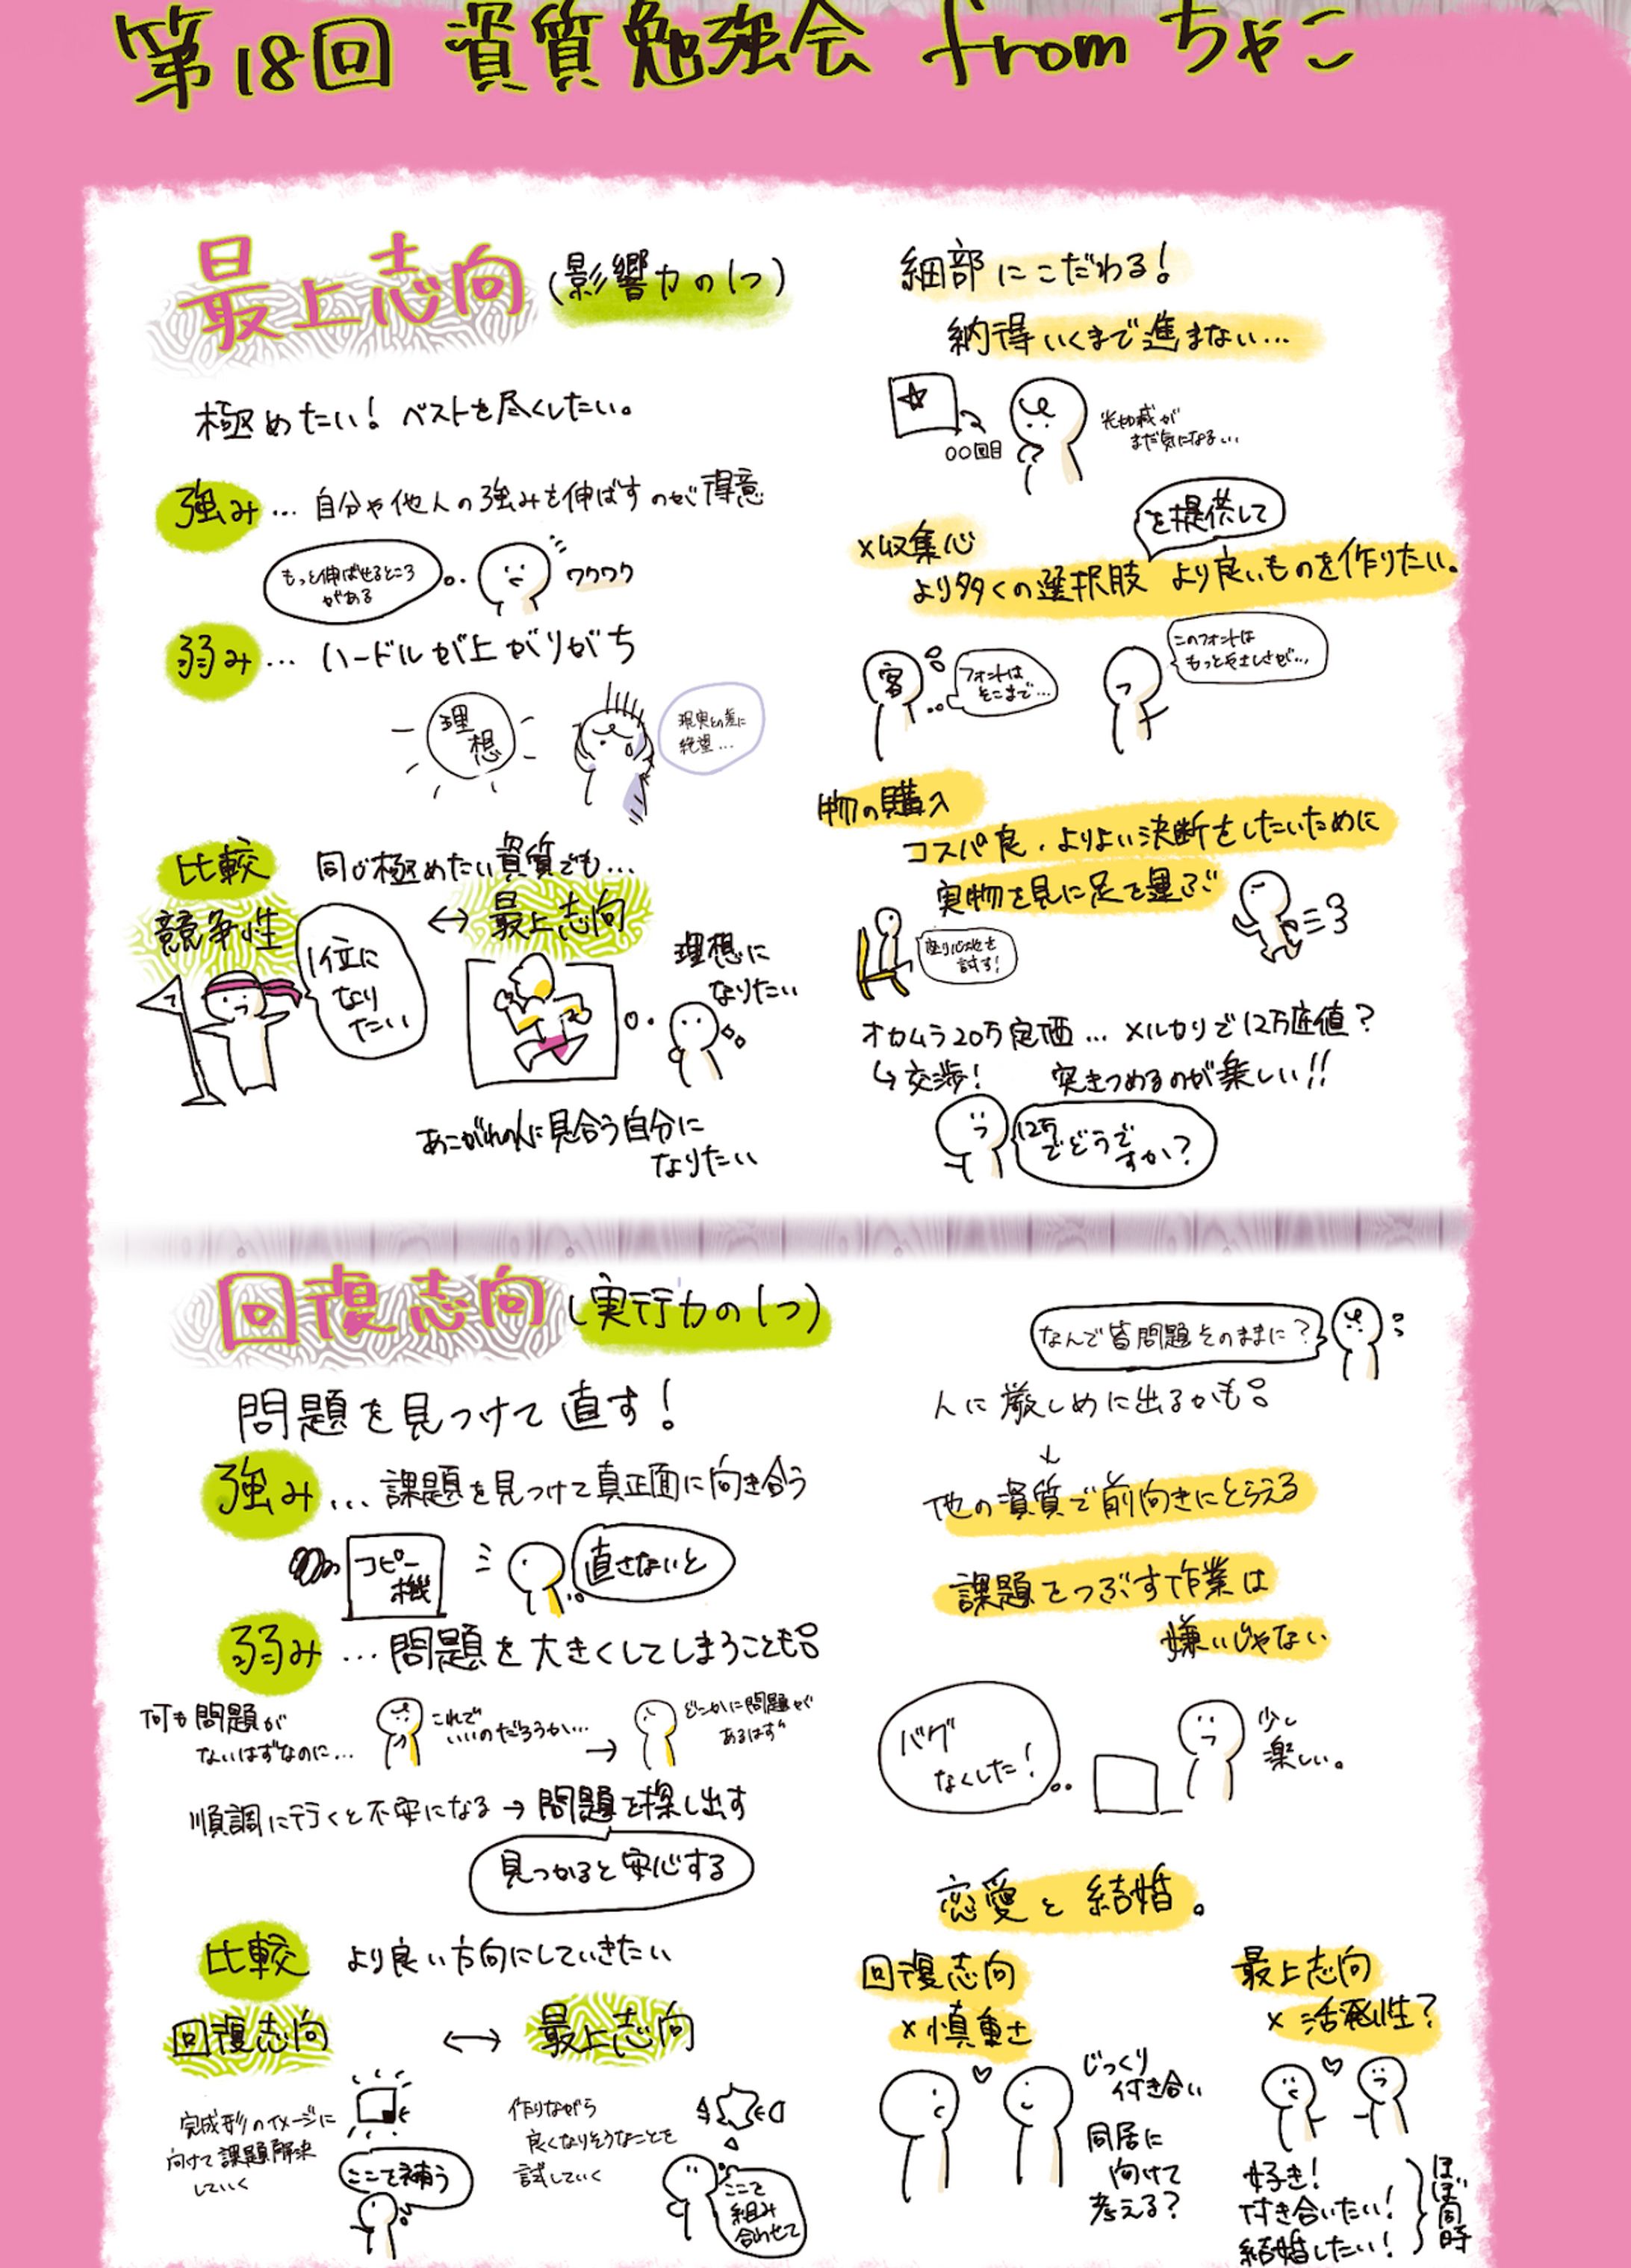 第18回 資質勉強会 from ちゃこ
最上志向(影響力の1つ)
極めたい! ベストを尽くしたい。
強み… 自分や他人の強みを伸ばすのが得意
もっと伸ばせるところ
がある
ワクワク
弱み… ハードルが上がりがち
理想
現実との差に
絶望…
比較 同じ極めたい資質でも…
競争性 ↔ 最上志向
1位に
なり
たい
理想に
なりたい
あこがれの人に見合う自分に
なりたい
細部にこだわる!
納得いくまで進まない…
〇〇回目
光加減が
まだ気になる…
×収集心
を提供して
より多くの選択肢 より良いものを作りたい。
客
フォントは
そこまで…
このフォントは
もっとやさしさが…
物の購入
コスパ良・よりよい決断をしたいために
実物を見に足を運ぶ
座り心地を
試す!
オカムラ20万定価… メルカリで12万底値?
↳交渉! 突きつめるのが楽しい!!
12万
でどうで
すか?
回復志向(実行力の1つ)
問題を見つけて直す!
強み… 課題を見つけて真正面に向き合う
コピー
機
直さないと
弱み …問題を大きくしてしまうことも
何も問題が
ないはずなのに…
これで
いいのだろうか…
→
どこかに問題が
あるはず
順調に行くと不安になる→問題を探し出す
見つかると安心する
比較 より良い方向にしていきたい
回復志向 ↔ 最上志向
完成形のイメージに
向けて課題解決
していく
ここで補う
作りながら
良くなりそうなことを
試していく
ここで
組み
合わせて
なんで皆問題そのままに?
人に厳しめに出るかも
他の資質で前向きにとらえる
課題をつぶす作業は
嫌いじゃない
バグ
なくした!
少し
楽しい。
恋愛と結婚。
回復志向
×慎重さ
じっくり
付き合い
同居に
向けて
考える?
最上志向
×活発性?
好き!
付き合いたい!
結婚したい!
ほぼ同時